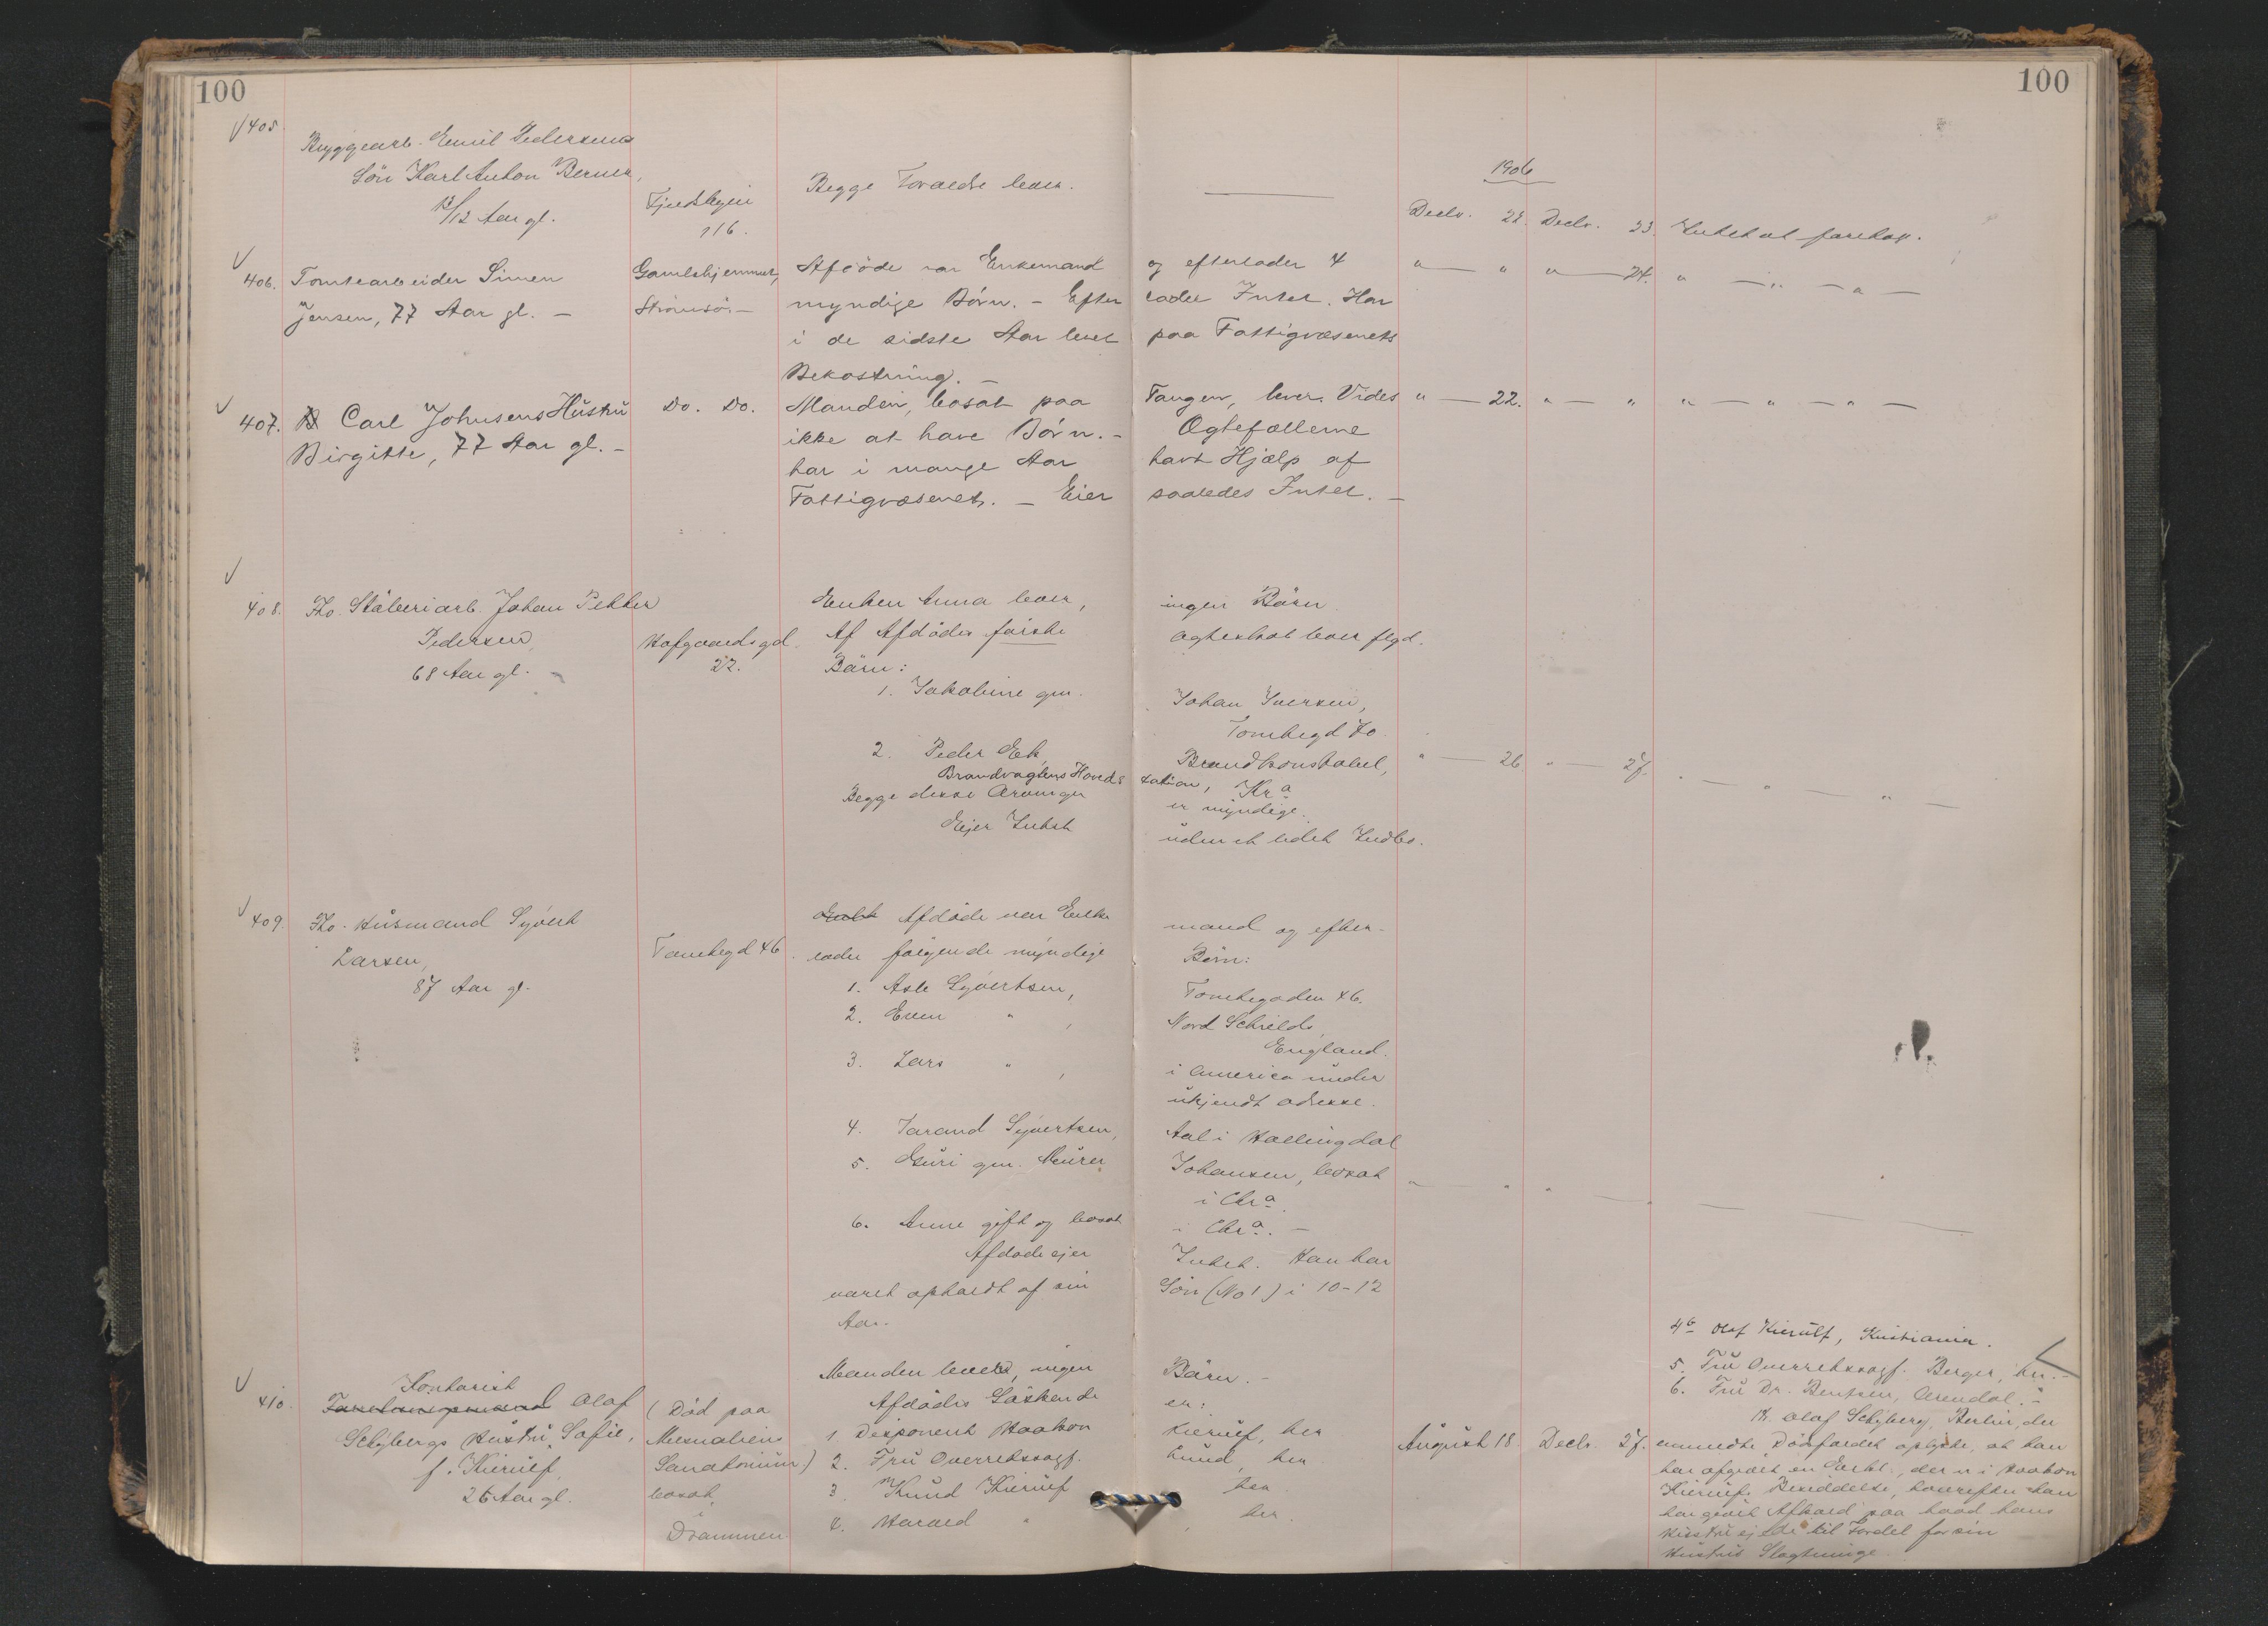 100
100
405. Bryggearb. Emil Pedersens
Sön Karl Anton Berner,
12/12 Aar gl.
116.
Begge Foraeldre lever.
1906
Decbr. 22. Decbr. 23. Intet at foretage.
406. Tomtearbeider Simen
Jensen, 77 Aar gl. —
Gamlehjemmet,
Strömsö. —
Afdöde var Enkemand og efterlader 4
myndige Börn. — Efterlader Intet. Har
i de sidste Aar levet paa Fattigvæsenets
Bekostning. —
" — " " — 24. " — " — " —
407. Carl Johnsens Hustru
Birgitte, 77 Aar gl. —
Do. Do.
Manden, bosat paa Tangen, lever. Vides
ikke at have Börn. — Ægtefællerne
har i mange Aar havt Hjælp af
Fattigvæsenet. — Eier saaledes Intet. —
" — 22. " — " " — " — " —
408. Fho. Stöberiarb. Johan Petter
Pedersen,
68 Aar gl.
Hofgaardsgd.
22.
Enken Anna lever, ingen Börn.
Af Afdödes förste Ægteskab lever flgd.
Börn:
1. Jakobine gm. Johan Iversen,
Tomtegd 40.
2. Peder Ek, Brandkonstabel,
Brandvagtens Hovedstation, Kra
Begge disse Arvinger er myndige.
Ejer Intet uden et lidet Indbo.
" — 26. " — 27. " — " — " —
409. Fho. Husmand Syvert
Larsen,
87 Aar gl.
Tomtegd 46.
Afdöde var Enkemand og efter-
lader fölgende myndige Börn:
1. Asle Syvertsen, Tomtegaden 46.
2. Even " , Nord Schields,
England.
3. Lars " , i America under
ukjendt adresse.
4. Tarand Syvertsen, Aal i Hallingdal
5. Guri gm. Murer Johansen, bosat
i Chra.
6. Anne gift og bosat i Chra. —
Afdöde ejer Intet. Han har
været opholdt af sin Sön (No 1) i 10-12
Aar.
410. Kontorist
Olaf
Schybergs Hustru Sofie,
f. Kierulf,
26 Aar gl.
(Död paa
Mesnaliens
Sanatorium.)
bosat
i
Drammen.
Manden lever, ingen Börn. —
Afdödes Söskende er:
1. Disponent Haakon Kierulf, her
2. Fru Overretssagf. Lund, her
3. Knud Kierulf her
4. Harald " , her.
August 18. Decbr. 27.
4b Olaf Kierulf, Kristiania.
5. Fru Overretssagf. Berger, her. —
6. Fru Dr. Bentzen, Arendal. —
Hr. Olaf Schyberg, Berlin, der
anmeldte Dödsfaldet oplyste, at han
har afgivet en Erkl., der er i Haakon
Kierulfs Besiddelse, hvorefter han
har givet Afkald paa hvad hans
Hustru ejede til Fordel for sin
Hustrus Slægtninge.